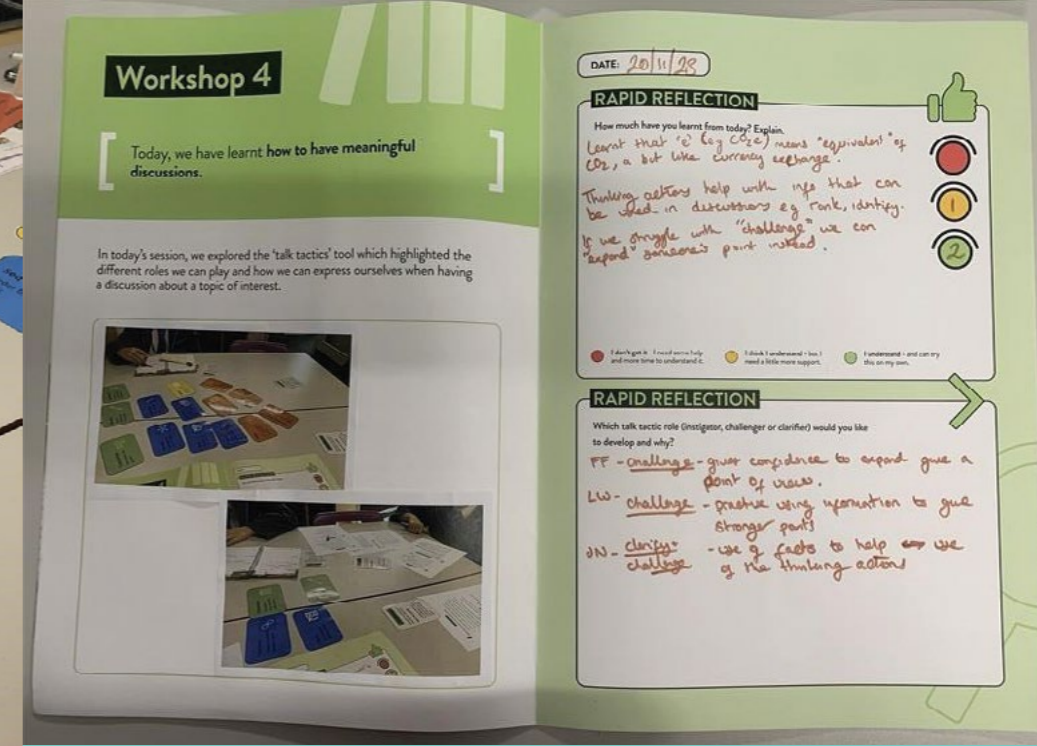 Workshop 4
Today, we have learnt how to have meaningful
discussions.
In today's session, we explored the 'talk tactics' tool which highlighted the
different roles we can play and how we can express ourselves when having
a discussion about a topic of interest.
DATE: 20/11/23
RAPID REFLECTION
How much have you learnt from today? Explain.
Learnt that 'e' (eg CO2e) means "equivalent" of
CO2, a bit like currency exchange.
Thinking actions help with info that can
be used in discussions eg rank, identify.
If we struggle with "challenge" we can
"expand" someone's point instead.
1
2
I don't get it - I need some help
and more time to understand it.
I think I understand - but I
need a little more support.
I understand - and can try
this on my own.
RAPID REFLECTION
Which talk tactic role (instigator, challenger or clarifier) would you like
to develop and why?
FF - challenge - gives confidence to expand give a
point of view.
LW - challenge - practise using information to give
stronger points
JN - clarify + - use of facts to help use
challenge of the thinking actions